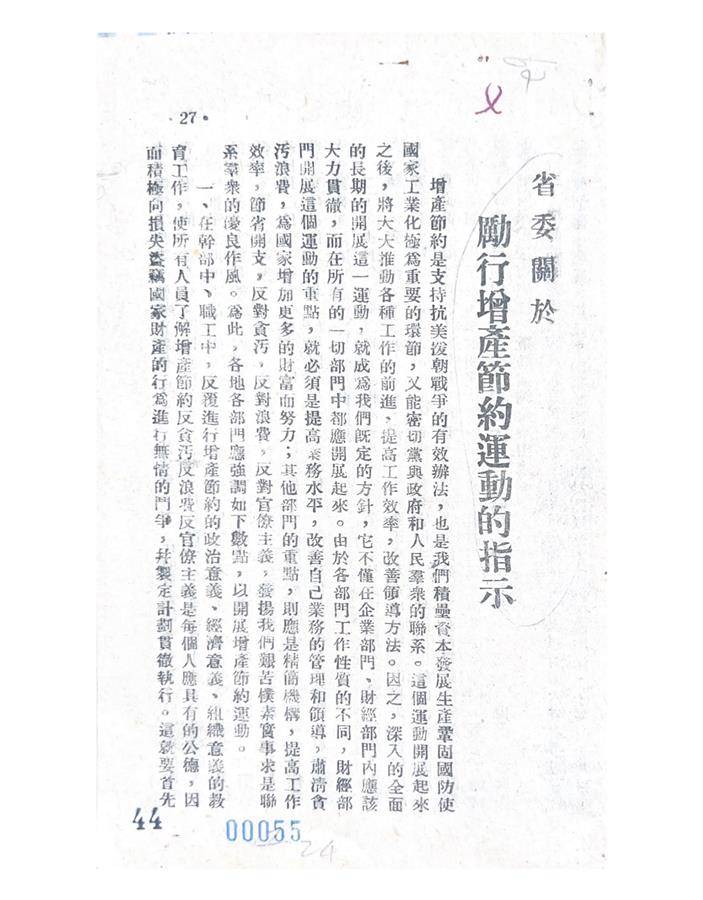 ·27·
省委關於
勵行增產節約運動的指示
增產節約是支持抗美援朝戰爭的有效辦法，也是我們積壘資本發展生產鞏固國防使
國家工業化極爲重要的環節，又能密切黨與政府和人民羣衆的聯系。這個運動開展起來
之後，將大大推動各種工作的前進，提高工作效率，改善領導方法。因之，深入的全面
的長期的開展這一運動，就成爲我們既定的方針，它不僅在企業部門、財經部門內應該
大力貫徹，而在所有的一切部門中都應開展起來。由於各部門工作性質的不同，財經部
門開展這個運動的重點，就必須是提高業務水平，改善自己業務的管理和領導，肅清貪
汚浪費，爲國家增加更多的財富而努力；其他部門的重點，則應是精簡機構，提高工作
效率，節省開支，反對貪汚，反對浪費，反對官僚主義，發揚我們艱苦樸素實事求是聯
系羣衆的優良作風。爲此，各地各部門應強調如下數點，以開展增產節約運動。
一、在幹部中、職工中，反覆進行增產節約的政治意義、經濟意義、組織意義的教
育工作，使所有人員了解增產節約反貪汚反浪費反官僚主義是每個人應具有的公德，因
而積極向損失盜竊國家財產的行爲進行無情的鬥爭，幷製定計劃貫徹執行。這就要首先
44
00055
24